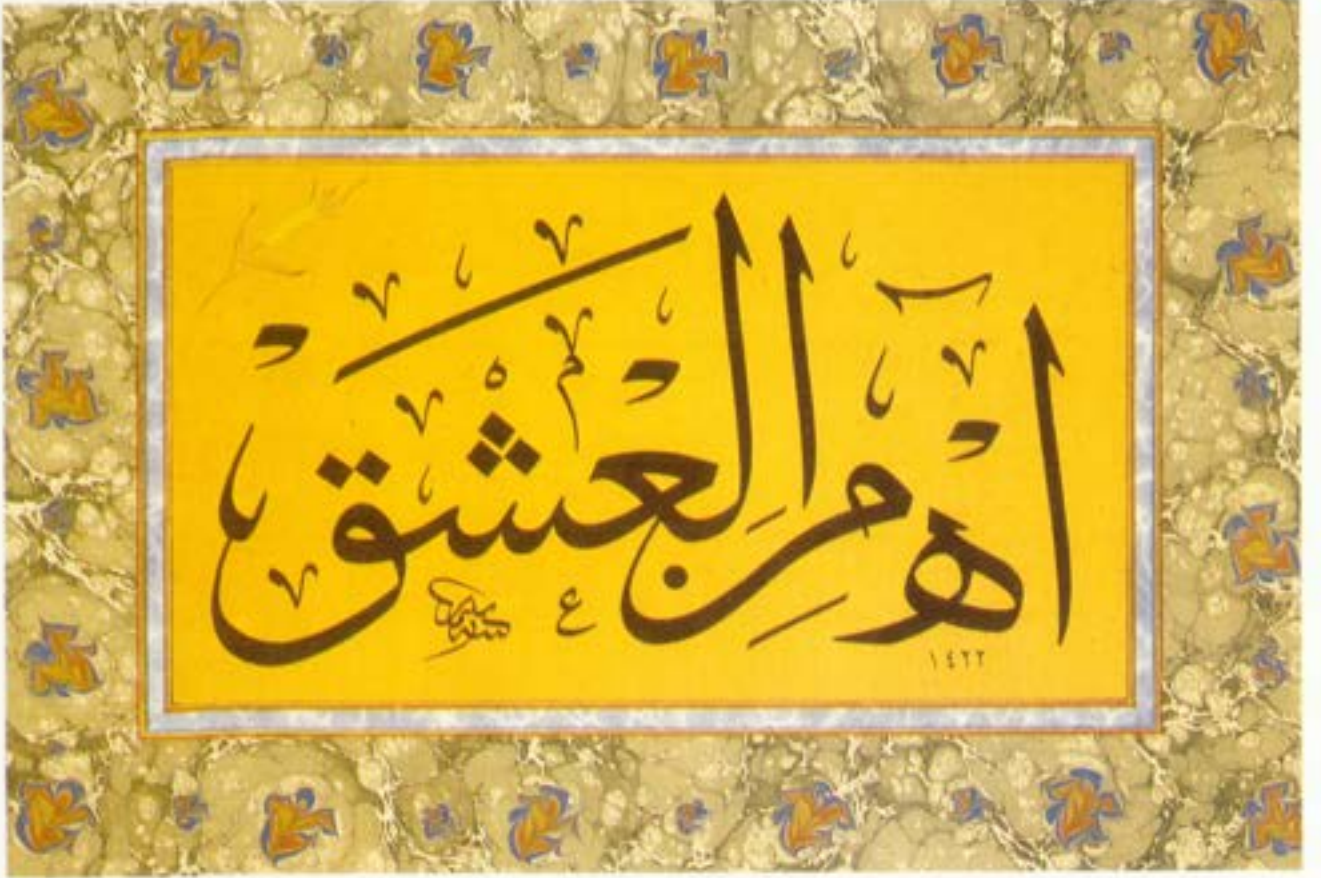 آهْ مِنَ الْعِشْقْ
١٤٢٢